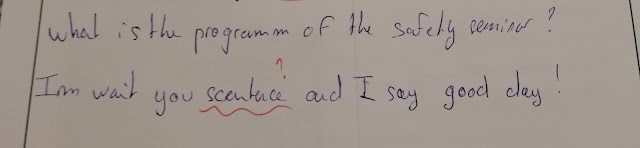 what is the programm of the safety seminar?
?
Imm wait you scentence and I say good day!